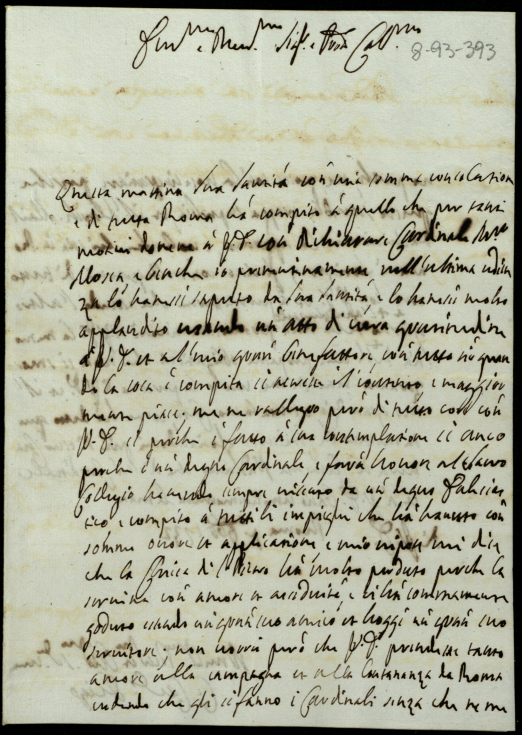 Em.mo e Rev.mo Sig.r e P.ron Col.mo
8-93-393
Questa mattina Sua Santità con mia somma consolatione
e di tutta Roma ha compito à quello che per tanti
motivi doveva à V.E. con dichiarare Cardinale Mr
Mosca e benche io primieramente nell'ultima udien
za lo havessi saputo da Sua Santità e lo havessi molto
applaudito essendo un atto di vera gratitudine
à V.E. et al mio gran benefattore con tutto ciò quan
do la cosa è compita si accresce il contento e maggior
mente piace. me ne rallegro però di tutto cuore con
V.E. si perche è fatto à sua contemplatione si anco
perche è un degno Cardinale e farà honore al Sacro
Collegio havendo sempre vissuto da un degno Eclesias
tico e compito à tutti li impieghi che ha havuto con
sommo onore et applicatione e mio nipote mi dice
che la Carica di hà molto perduto perche la
serviva con amore et assiduità e li hà
goduto essendo un gran suo amico et hoggi un gran suo
servitore. non vorrei però che V.E. prendesse tanto
amore alla campagna et alla lontananza da Roma
vedendo che gli si fanno i Cardinali senza che ne me